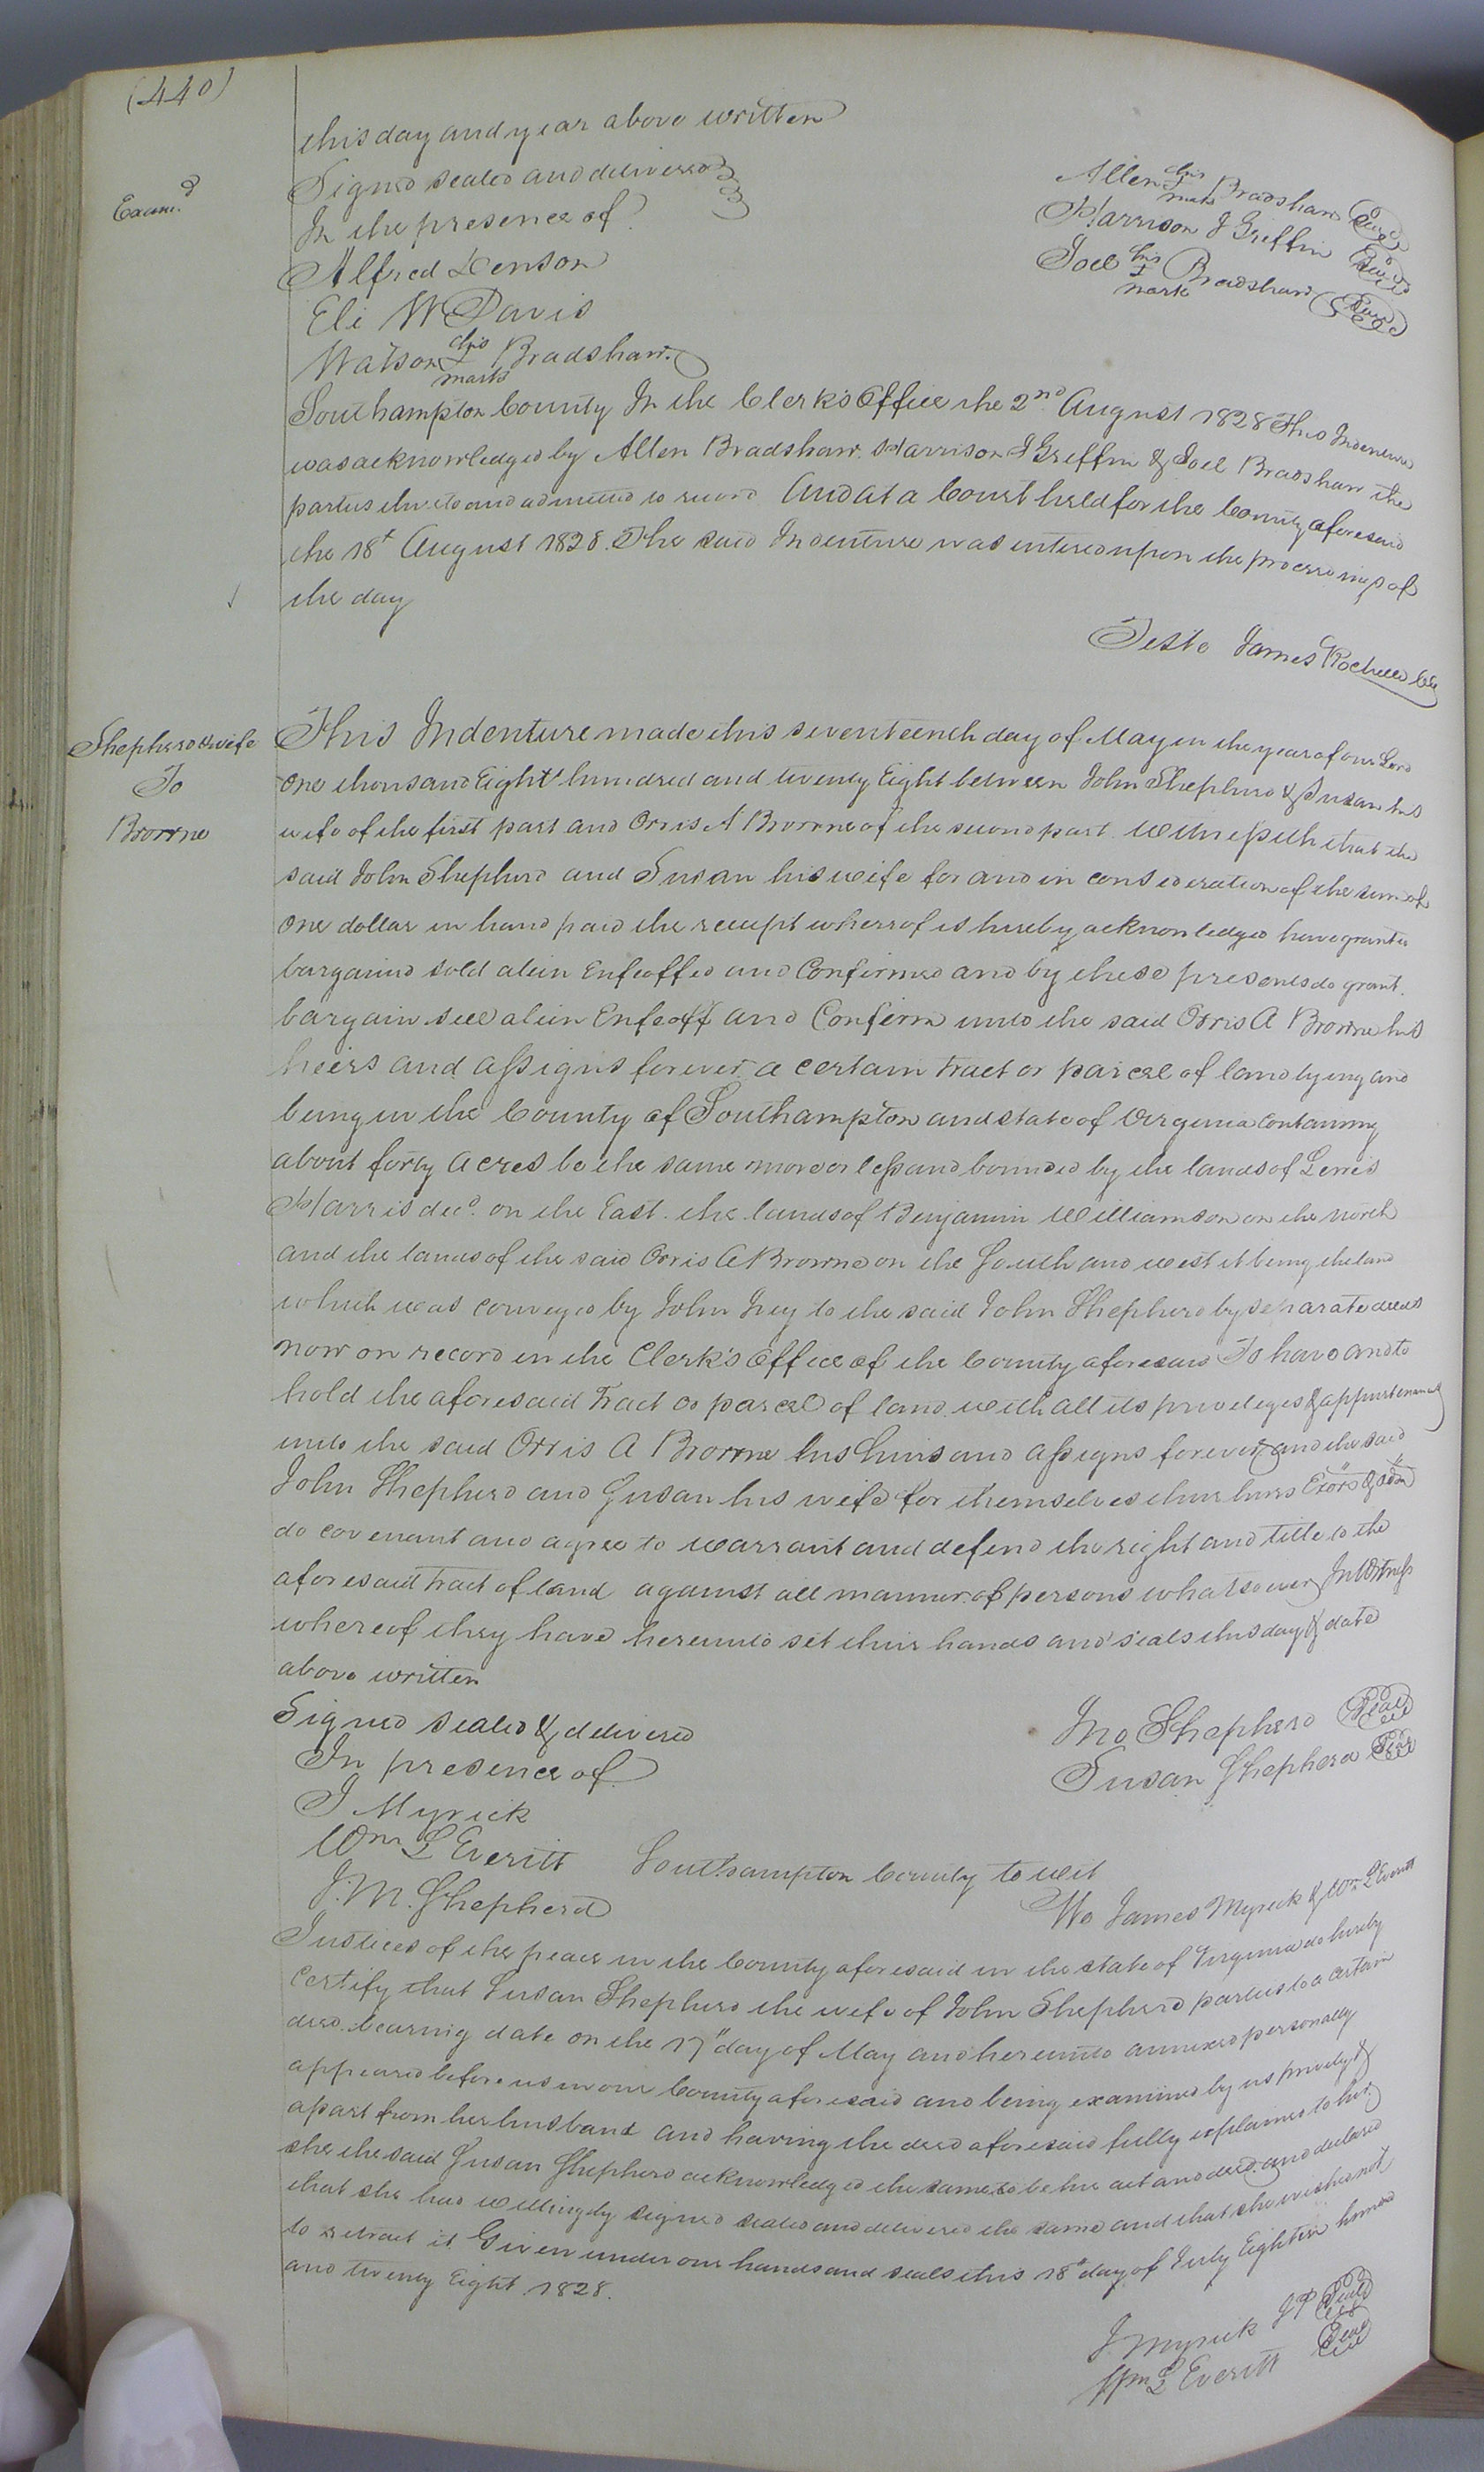 (440)
this day and year above written
Exam.d
Signed sealed and delivered
In the presence of
Alfred Denson
Eli W Davis
Watson his mark Bradshaw.
Allen his mark Bradshaw Seal
Harrison J Griffin Seal
Joel his mark Bradshaw Seal
Southampton County In the Clerk's Office the 2nd August 1828 This Indenture
was acknowledged by Allen Bradshaw. Harrison J Griffin & Joel Bradshaw the
parties thereto and admitted to record And at a Court held for the County aforesaid
the 18t August 1828. The said Indenture was entered upon the proceedings of
the day
Teste James Rochelle
Shepherd & wife
To
Browne
This Indenture made this seventeenth day of May in the year of our Lord
one thousand Eight hundred and twenty Eight between John Shepherd & Susan his
wife of the first part and Orris A Browne of the second part. Witnesseth that the
said John Shepherd and Susan his wife for and in consideration of the sum of
one dollar in hand paid the receipt whereof is hereby acknowledged have granted
bargained sold alien Enfeoffed and Confirmed and by these presents do grant.
bargain sell alien Enfeoff and Confirm unto the said Orris A Browne his
heirs and assigns forever a certain tract or parcel of land lying and
being in the County of Southampton and state of Virginia Containing
about forty acres be the same more or less and bounded by the lands of Lewis
Harris decd. on the East. the lands of Benjamin Williamson on the north
and the lands of the said Orris A Browne on the South and west it being the land
which was conveyed by John Ivey to the said John Shepherd by separate deeds
now on record in the Clerk's Office of the County aforesaid To have and to
hold the aforesaid tract or parcel of land with all its priveleges & appurtenances
unto the said Orris A Browne his heirs and assigns forever and the said
John Shepherd and Susan his wife for themselves their heirs Exors & adm
do covenant and agree to warrant and defend the right and title to the
aforesaid tract of land against all manner of persons whatsoever In Witness
whereof they have hereunto set their hands and seals this day & date
above written
Signed sealed & delivered
In presence of
J Myrick
Wm L Everitt
J. M. Shepherd
Jno Shepherd Seal
Susan Shepherd Seal
Southampton County to wit
We James Myrick & Wm L Everitt
Justices of the peace in the County aforesaid in the state of Virginia do hereby
certify that Susan Shepherd the wife of John Shepherd parties to a certain
deed bearing date on the 17" day of May and hereunto annexed personally
appeared before us in our County aforesaid and being examined by us privily &
apart from her husband and having the deed aforesaid fully explained to her
she the said Susan Shepherd acknowledged the same to be her act and deed and declared
that she had willingly signed sealed and delivered the same and that she wishes not
to retract it Given under our hands and seals this 18" day of July Eighteen hundred
and twenty Eight 1828.
J. Myrick J P Seal
Wm L Everitt Seal